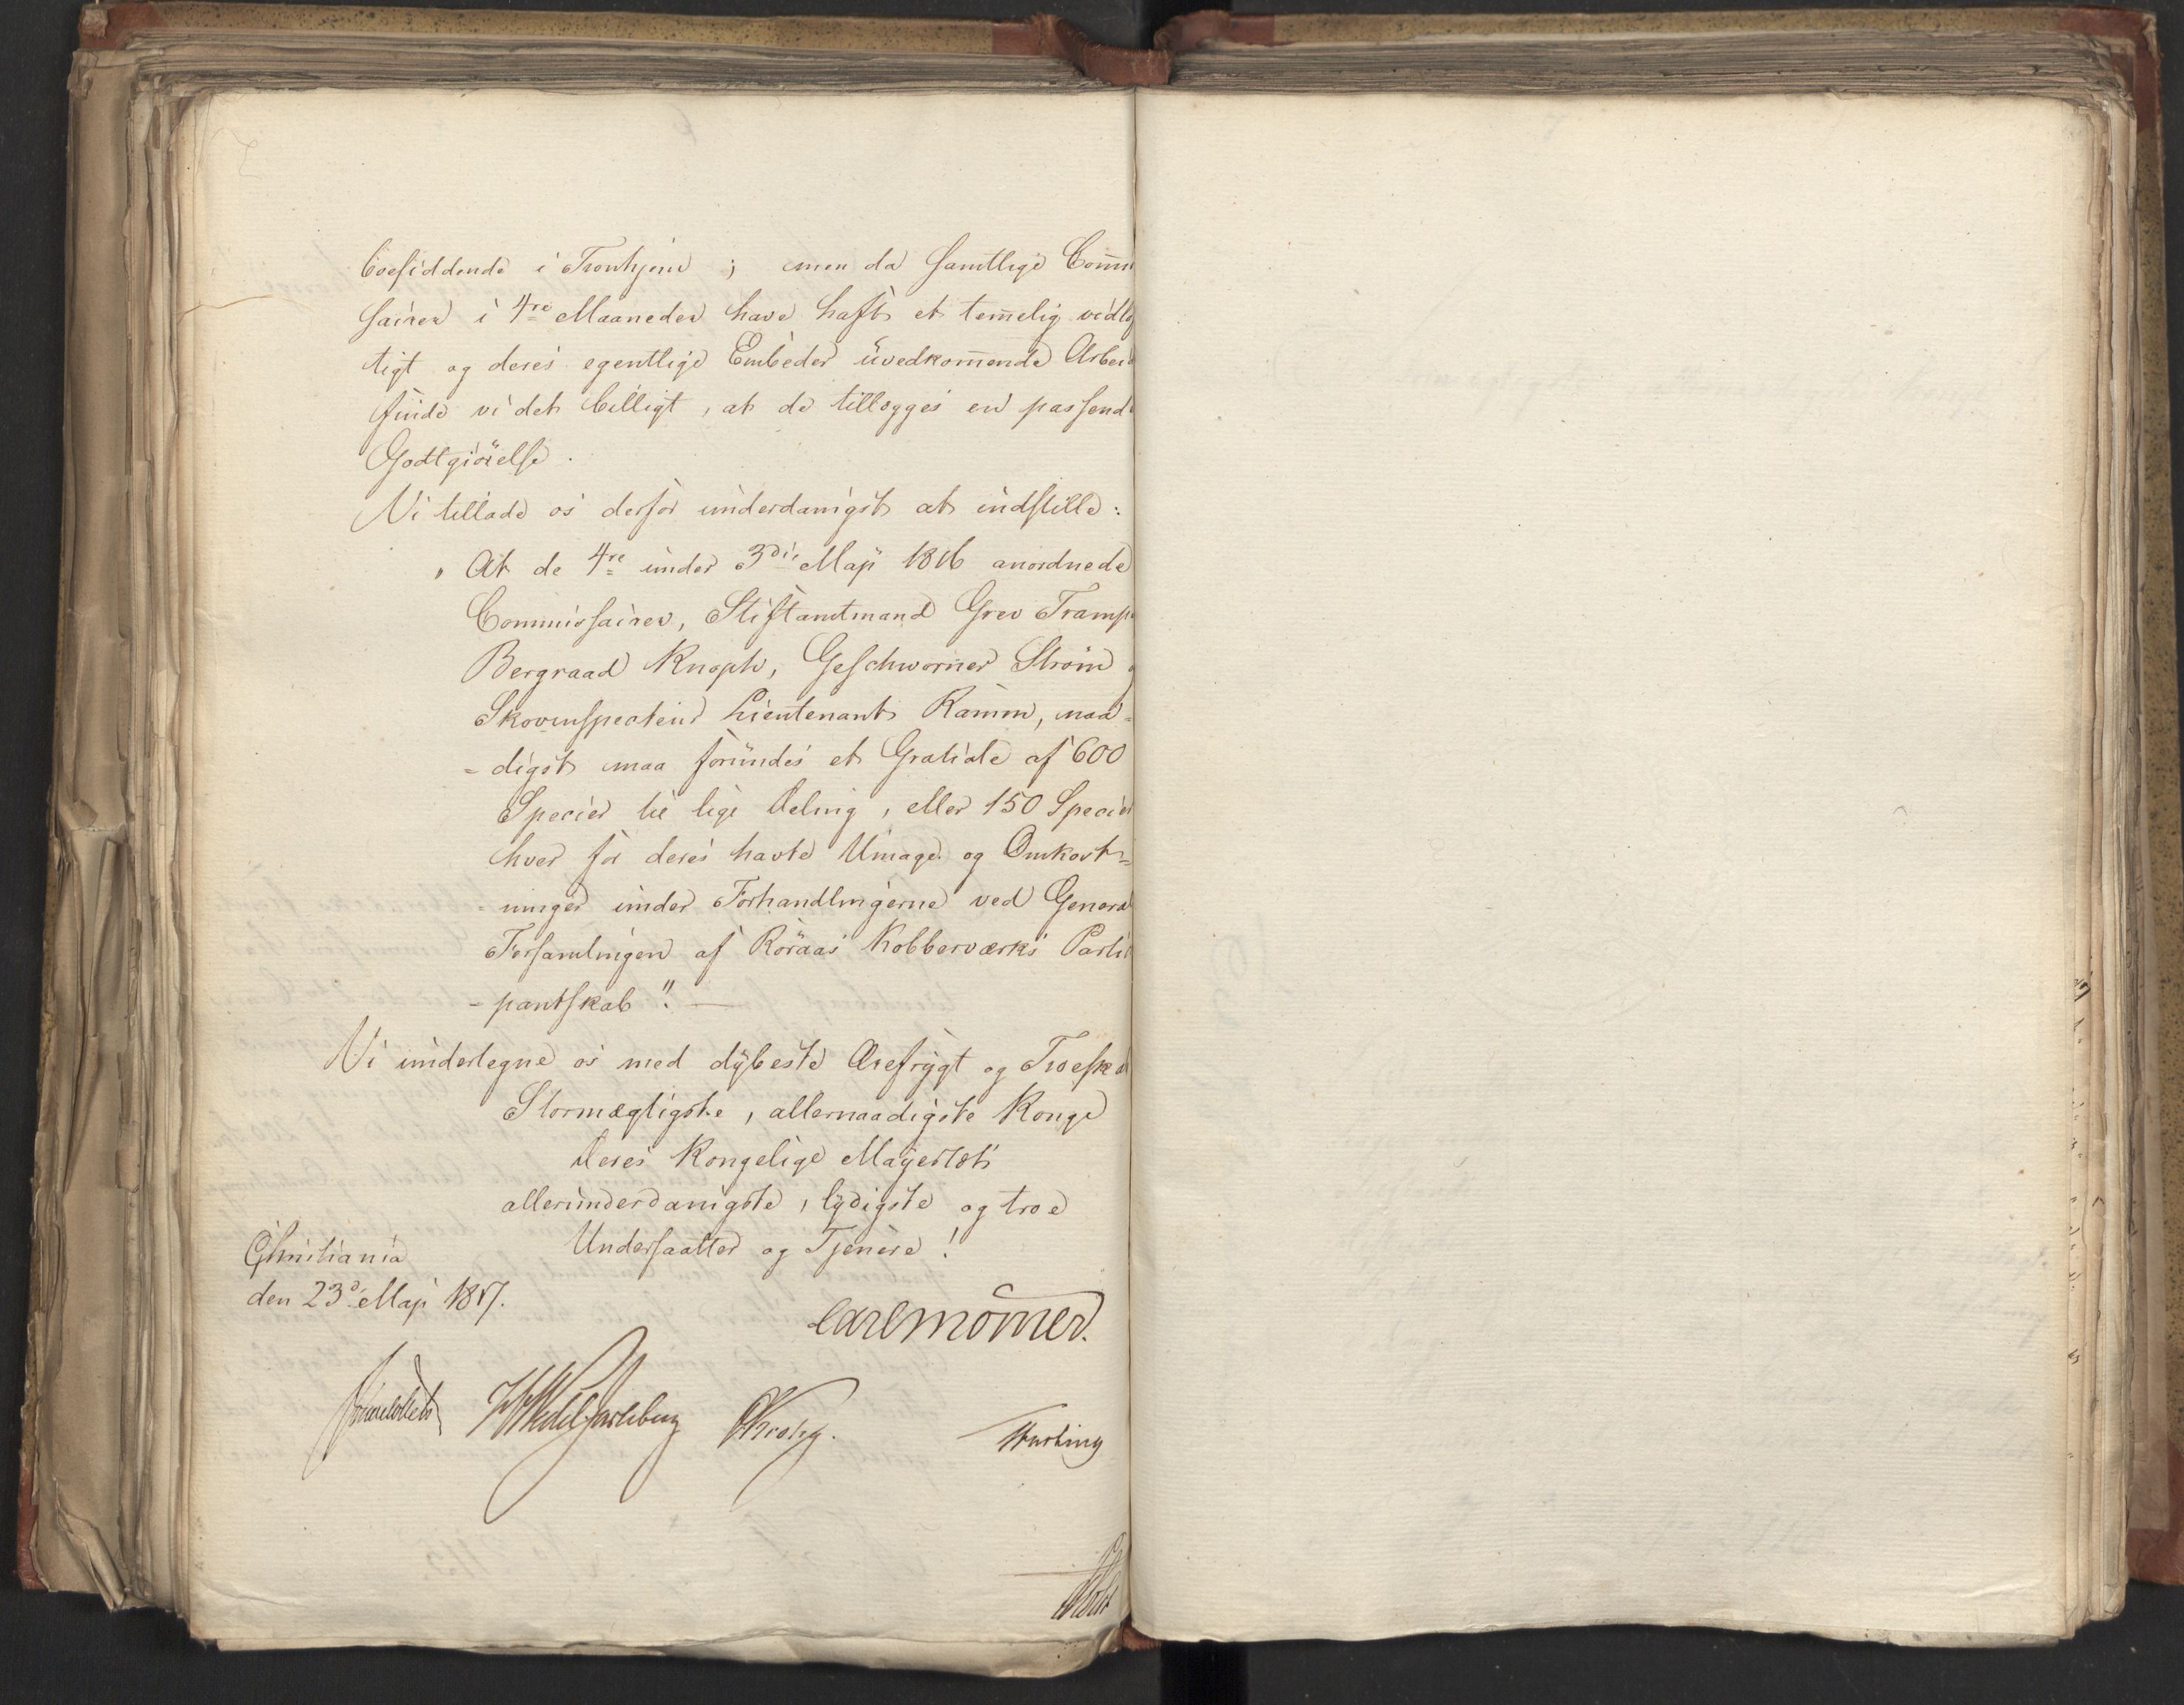 boesiddende i Tronhjem ; men da samtlige Comm
sairer i 4re Maaneder have haft et temelig vidtlø
tigt og deres egentlige Embeder uvedkomende Arbei
finde vi det billigt, at de tillægges en passend
Godtgiörelse.
Vi tillade os derfor underdanigst at indstille:
" At de 4re under 3die Maji 1816 anordnede
Commissairer, Stiftamtmand Grev Tramp
Bergraad Knoph, Geschworner Strøm o
Skovinspecteur Lieutenant Ramm, naa=
=digst maa forundes et Gratiale af 600
Specier til lige Deling, eller 150 Specier
hver for deres havte Umage og Omkost=
=ninger under Forhandlingerne ved General
Forsamlingen af Röraas Kobberværks Parti
-pantskab". —
Vi undertegne os med dybeste Ærefrygt og Troeska
Stormægtigste, allernaadigste Konge
Deres Kongelige Majestæts
allerunderdanigste, lydigste og troe
Undersaatter og Tjenere!
Christiania
den 23de Maji 1817.
Carl Mörner.
Jonas Collett HWedelJarlsberg CKrohg. Hartvig
Holst